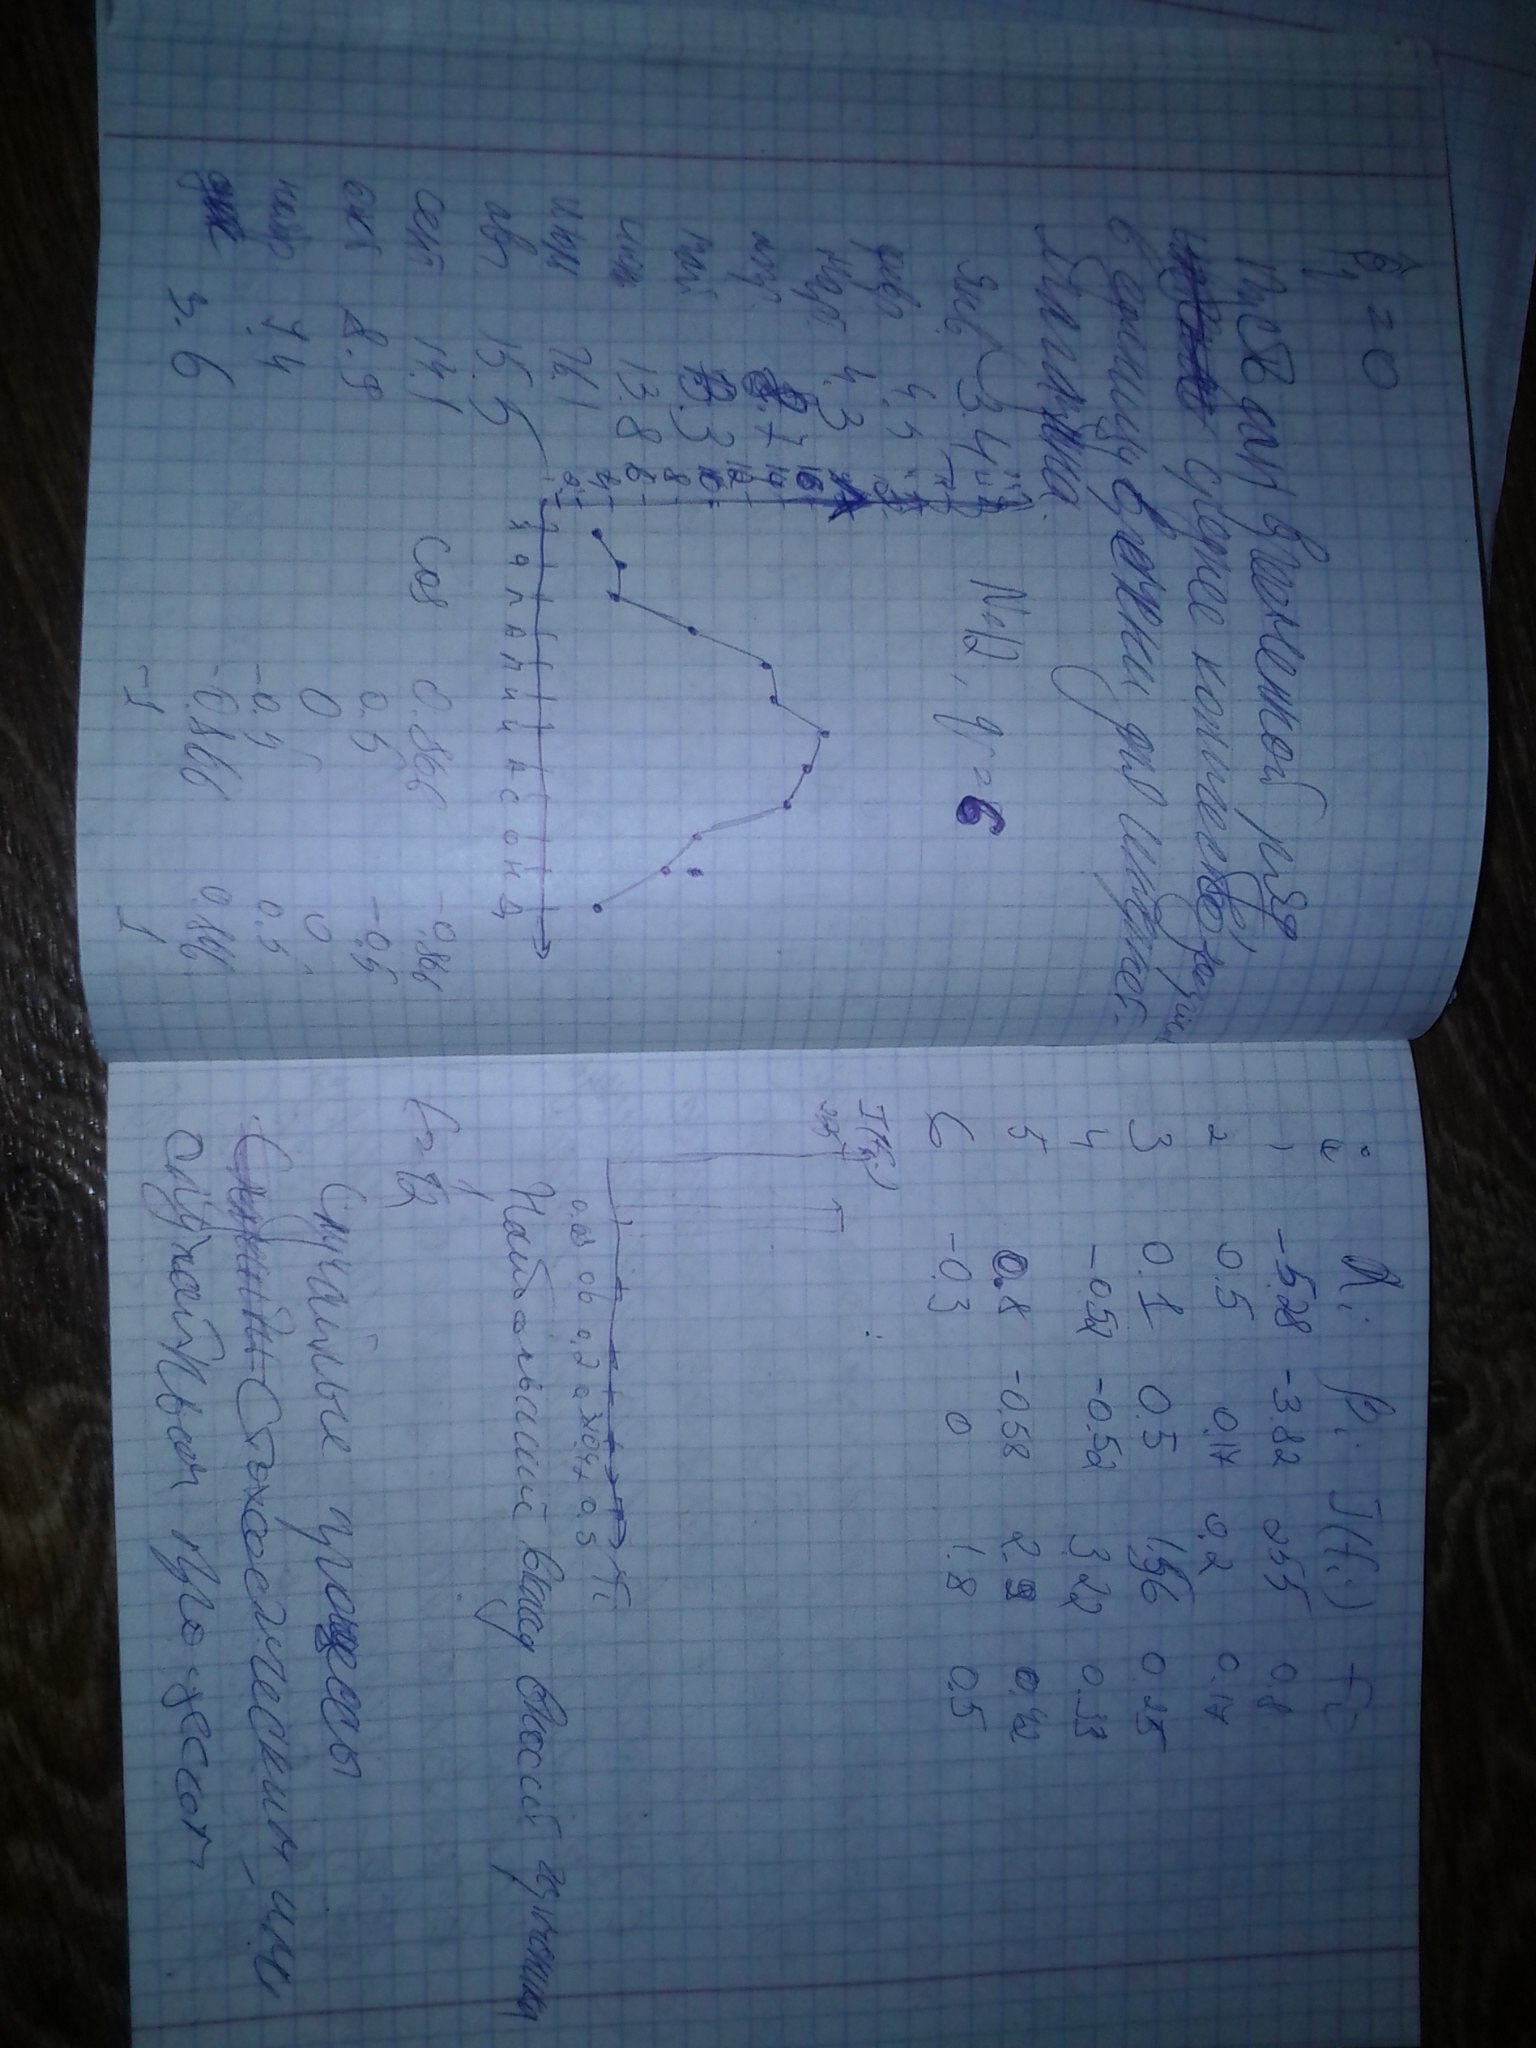 β̂q = 0
Пусть дан временной ряд,
среднее количество
в единицу времени для интернет-
магазина.
янв. 3.4
N=12, q = 6
февр 4.5
март. 4.3
апр. 8.7
май 13.3
июн 13.8
июл 16.1
авг 15.5
сент 14.1
окт 8.9
нояб 7.4
дек 3.6
16
14
12
10
8
6
4
2
Я Ф М А М И И А С О Н Д
cos 0.866 -0.866
0.5 -0.5
0 0
-0.5 0.5
-0.866 0.866
-1 1
i αi βi I(fi) fi
1 -5.28 -3.82 255 0.8
2 0.5 0.17 0.2 0.17
3 0.1 0.5 1.56 0.25
4 -0.52 -0.52 3.22 0.33
5 0.8 -0.58 2.9 0.42
6 -0.3 0 1.8 0.5
I(fi)
255
fi
Наибольший вклад вносит гармоника
f = 1/12
Случайные процессы
Стохастическим или
случайным процессом